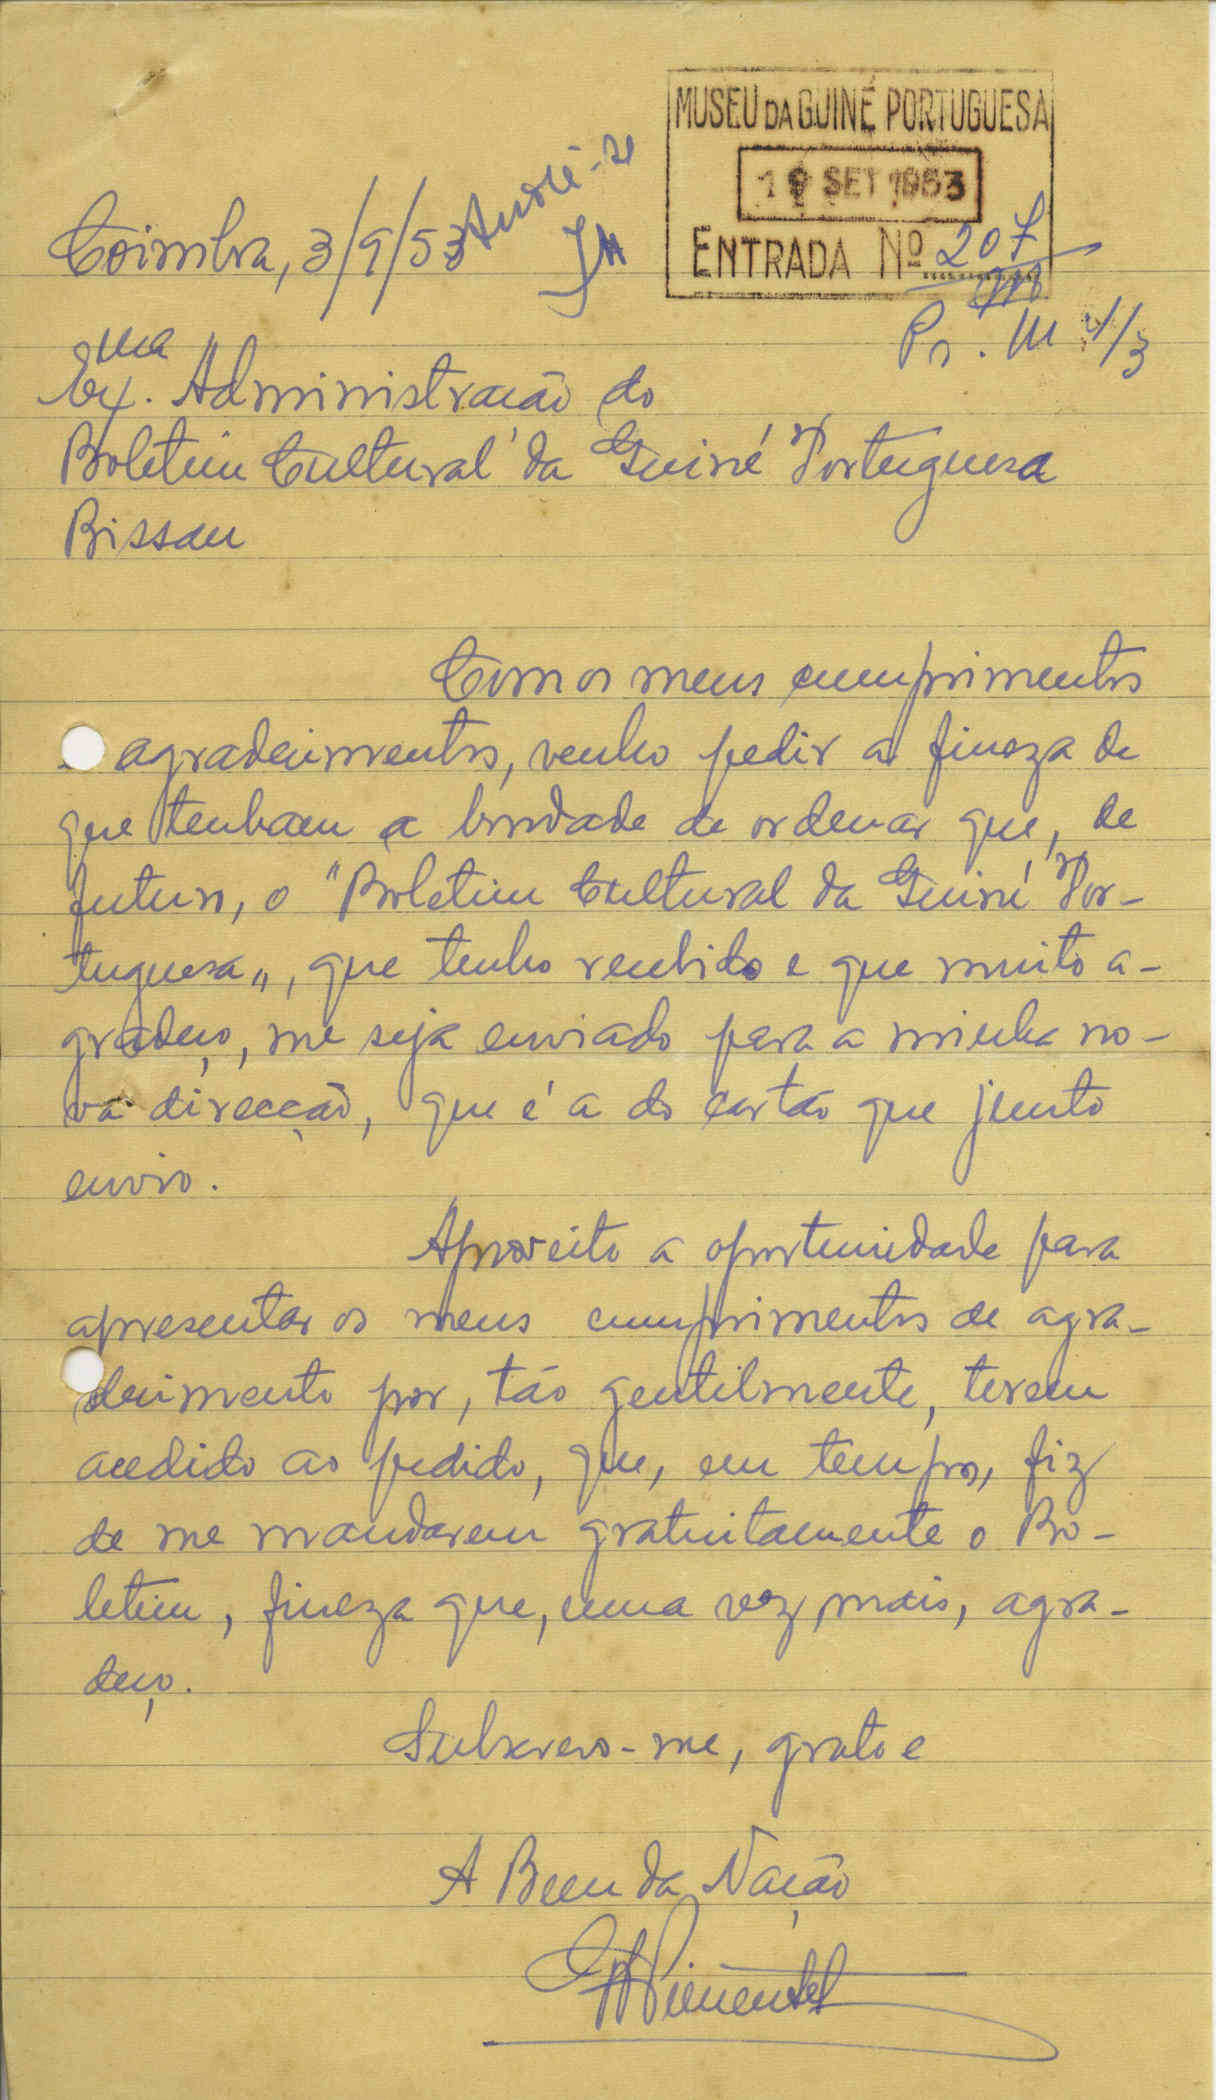 MUSEU DA GUINÉ PORTUGUESA
19 SET 1953
ENTRADA Nº 207
Pr. III 1/3
Coimbra, 3/9/53
Exma. Administração do
Boletim Cultural da Guiné Portuguesa
Bissau
Com os meus cumprimentos
agradecimentos, venho pedir a fineza de
que tenham a bondade de ordenar que, de
futuro, o "Boletim Cultural da Guiné Por-
tuguesa", que tenho recebido e que muito a-
gradeço, me seja enviado para a minha no-
va direcção, que é a do cartão que junto
envio.
Aproveito a oportunidade para
apresentar os meus cumprimentos de agra-
decimento por, tão gentilmente, terem
acedido ao pedido, que, em tempos, fiz
de me mandarem gratuitamente o Bo-
letim, fineza que, uma vez mais, agra-
deço.
Subscrevo-me, grato e
A Bem da Nação
Pimentel